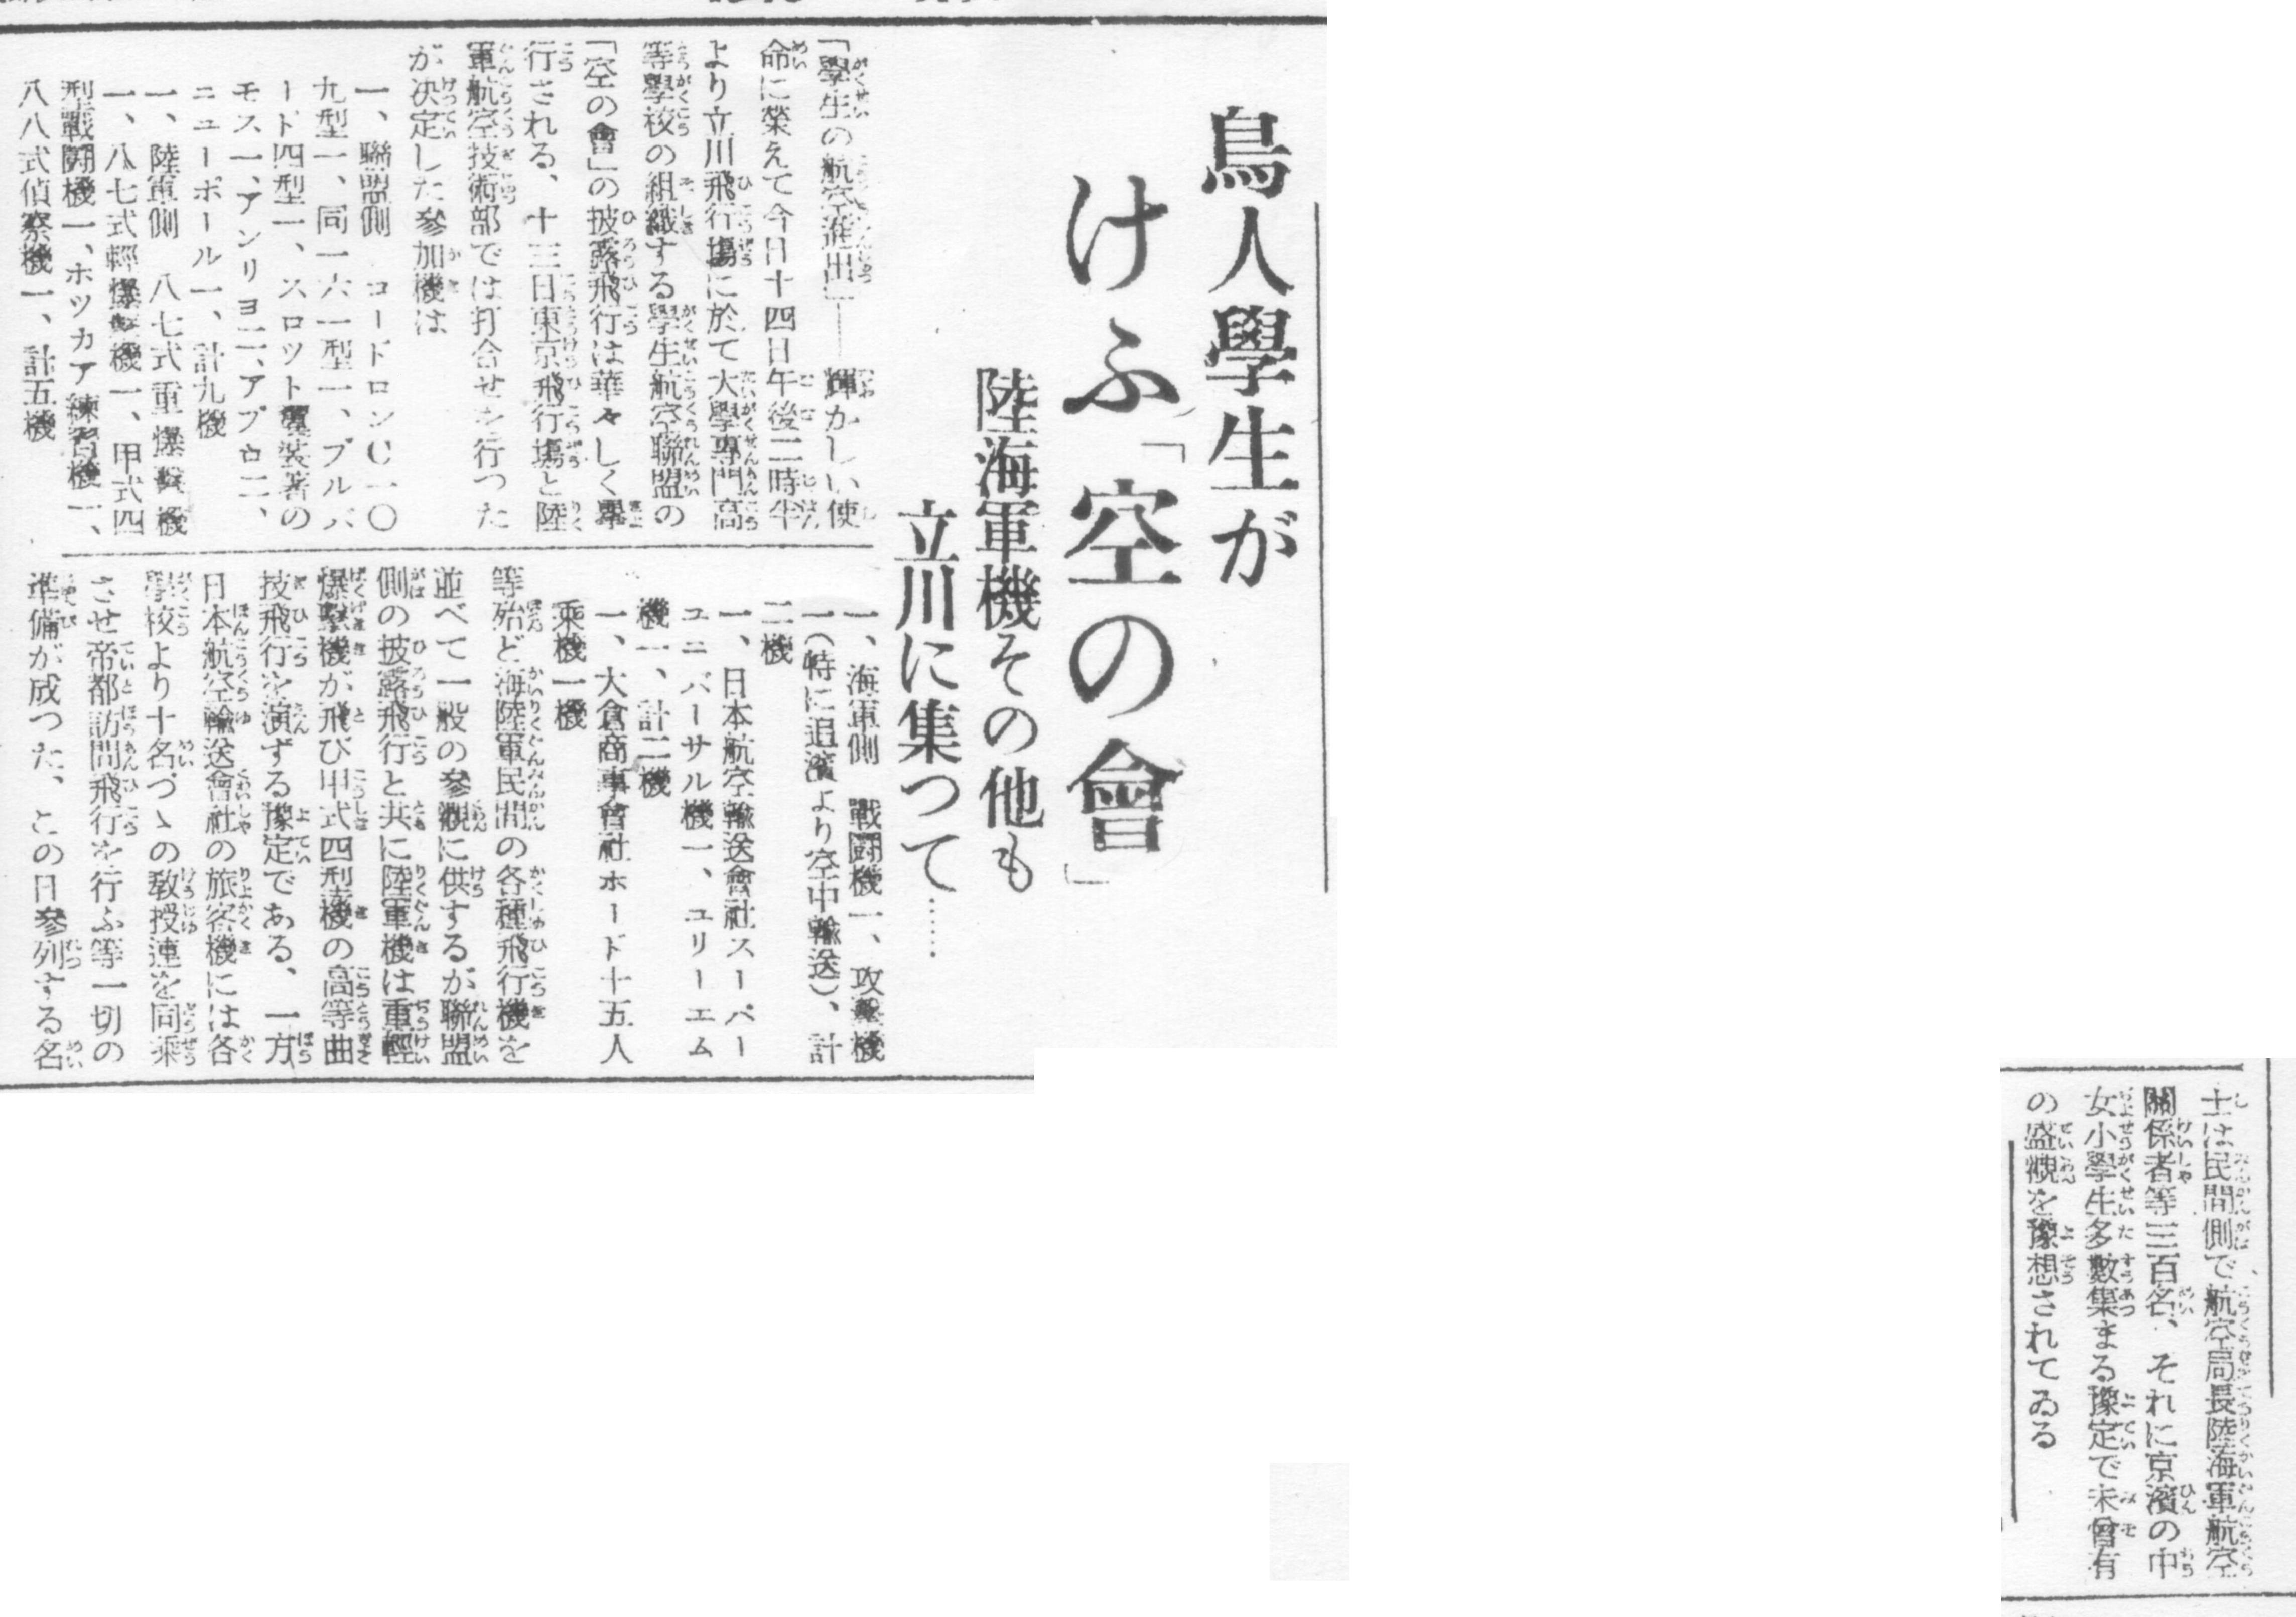 鳥人學生が
けふ「空の會」
陸海軍機その他も
立川に集つて……
「學生の航空進出」―― 輝かしい使
命に榮えて今日十四日午後二時半
より立川飛行場に於て大學專門高
等學校の組織する學生航空聯盟の
「空の會」の披露飛行は華々しく擧
行される、十三日東京飛行場と陸
軍航空技術部では打合せを行つた
が決定した參加機は
一、聯盟側 コードロンC一〇
九型一、同一六一型一、ブルバ
ード四型一、スロツト翼裝著の
モス一、アンリヨ二、アブロ二、
ニューポール一、計九機
一、陸軍側 八七式重爆擊機
一、八七式輕爆擊機一、甲式四
型戰鬪機一、ホツカア練習機一、
八八式偵察機一、計五機
一、海軍側 戰鬪機一、攻擊機
一(特に追濱より空中輸送)、計
二機
一、日本航空輸送會社スーパー
ユニバーサル機一、ユリーエム
機一、計二機
一、大倉商事會社ホード十五人
乘機一機
等殆ど海陸軍民間の各種飛行機を
並べて一般の參觀に供するが聯盟
側の披露飛行と共に陸軍機は重輕
爆擊機が飛び甲式四型機の高等曲
技飛行を演ずる豫定である、一方
日本航空輸送會社の旅客機には各
學校より十名づゝの敎授連を同乘
させ帝都訪問飛行を行ふ等一切の
準備が成つた、この日參列する名
士は民間側で航空局長陸海軍航空
關係者等三百名、それに京濱の中
女小學生多數集まる豫定で未曾有
の盛觀を豫想されてゐる